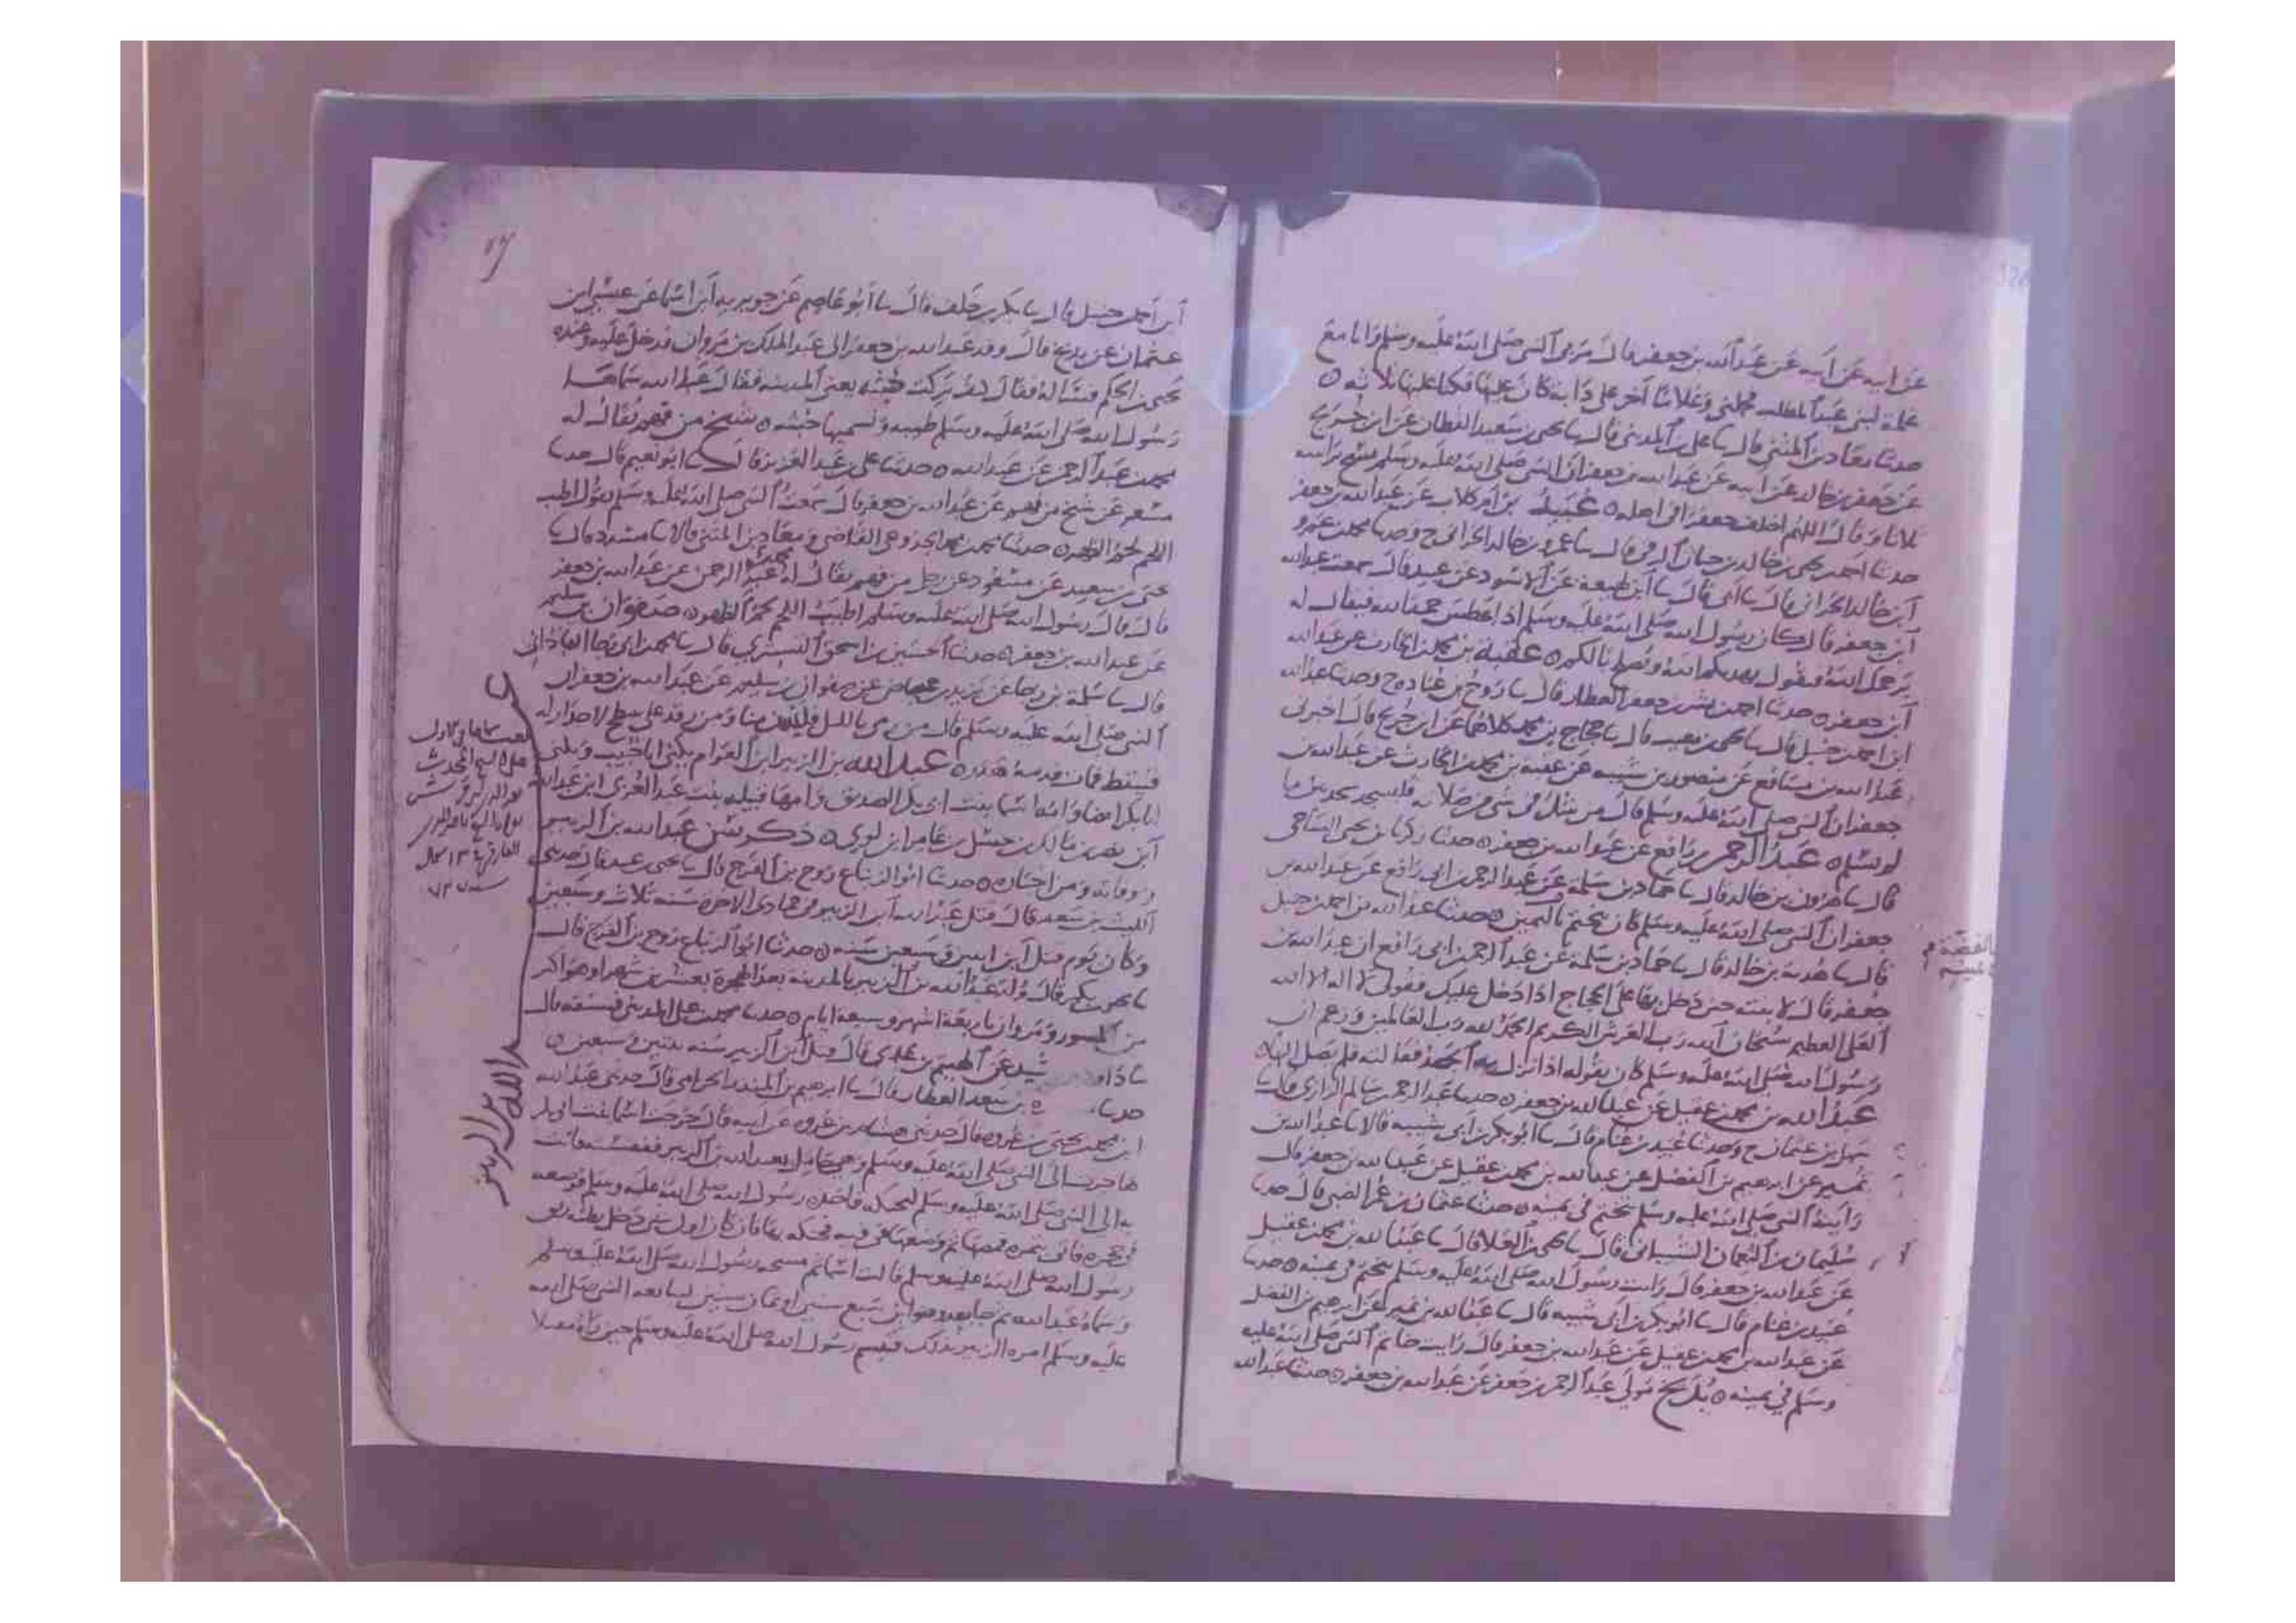 عن ابيه عن ابيه عن عبد الله بن جعفر قال مر بي النبي صلى الله عليه وسلم وانا مع
غلمة لبني عبد المطلب فحملني وغلاما آخر على دابة كان عليها فكنا عليها ثلاثة ه
حدثنا معاذ بن المثنى قال ثنا علي بن المديني قال ثنا يحيى بن سعيد القطان عن ابن جريج
عن جعفر بن خالد عن ابيه عن عبد الله بن جعفر ان النبي صلى الله عليه وسلم مسح براسه
ثلاثا وقال اللهم اخلف جعفرا في اهله ه عبيد بن ام كلاب عن عبد الله بن جعفر
حدثنا احمد بن يحيى بن خالد بن حيان الرقي قال ثنا عمرو بن خالد الحراني ح وحدثنا محمد بن عمرو
ابن خالد الحراني قال ثنا ابي قال ثنا ابن لهيعة عن ابي الاسود عن عبيد قال سمعت عبد الله
ابن جعفر قال كان رسول الله صلى الله عليه وسلم اذا عطس حمد الله فيقال له
يرحمك الله فيقول يهديكم الله ويصلح بالكم ه عقبة بن محمد بن الحارث عن عبد الله
ابن جعفر ه حدثنا احمد بن بشر بن جعفر العطار قال ثنا روح بن عبادة ح وحدثنا عبد الله
ابن احمد بن حنبل قال ثنا يحيى بن معين قال ثنا حجاج بن محمد كلاهما عن ابن جريج قال اخبرني
عبد الله بن مسافع عن منصور بن شيبه عن عقبة بن محمد بن الحارث عن عبد الله بن
جعفر ان النبي صلى الله عليه وسلم قال من شك في شيء من صلاته فليسجد سجدتين ما
لم يسلم ه عبد الرحمن بن رافع عن عبد الله بن جعفر ه حدثنا زكريا بن يحيى الساجي
قال ثنا هارون بن خالد قال ثنا حماد بن سلمة عن عبد الرحمن بن ابي رافع عن عبد الله بن
جعفر ان النبي صلى الله عليه وسلم كان يتختم باليمين ه حدثنا عبد الله بن احمد بن حنبل
قال ثنا هدبة بن خالد قال ثنا حماد بن سلمة عن عبد الرحمن بن ابي رافع ان عبد الله بن
جعفر قال لابنته حين دخل بها على الحجاج اذا دخل عليك فقولي لا اله الا الله
العلي العظيم سبحان الله رب العرش الكريم الحمد لله رب العالمين وزعم ان
رسول الله صلى الله عليه وسلم كان يقوله اذا نزل به الجهد فقالته فلم يصل اليها ه
عبد الله بن محمد بن عقيل عن عبد الله بن جعفر ه حدثنا عبد الرحمن بن سالم الرازي قال ثنا
سهل بن عثمان ح وحدثنا عبيد بن غنام قال ثنا ابو بكر بن ابي شيبه قالا ثنا عبد الله بن
نمير عن ابرهيم بن الفضل عن عبد الله بن محمد بن عقيل عن عبد الله بن جعفر قال
رايت النبي صلى الله عليه وسلم يتختم في يمينه ه حدثنا عثمان بن عمر الضبي قال حدثنا
سليمان بن النعمان الشيباني قال ثنا يحيى بن العلا قال ثنا عبد الله بن محمد بن عقيل
عن عبد الله بن جعفر قال رايت رسول الله صلى الله عليه وسلم يتختم في يمينه ه حدثنا
عبيد بن غنام قال ثنا ابو بكر بن ابي شيبه قال ثنا عبد الله بن نمير عن ابرهيم بن الفضل
عن عبد الله بن محمد بن عقيل عن عبد الله بن جعفر قال رايت خاتم النبي صلى الله عليه
وسلم في يمينه ه بديح مولى عبد الرحمن بن جعفر عن عبد الله بن جعفر ه حدثنا عبد الله
ابن احمد بن حنبل قال ثنا بكر بن خلف قال ثنا ابو عاصم عن جويرية ابن اسما عن عيسى بن
عثمان عن بديح قال وفد عبد الله بن جعفر الى عبد الملك بن مروان فدخل عليه وعنده
يحيى بن الحكم فساله فقال كيف تركت خبثه يعني المدينه فقال عبد الله سماها
رسول الله صلى الله عليه وسلم طيبه وتسميها خبثه ه شيخ من فهم يقال له
محمد بن عبد الرحمن عن عبد الله ه حدثنا علي بن عبد العزيز قال ثنا ابو نعيم قال حدثنا
مسعر عن شيخ من فهم عن عبد الله بن جعفر قال سمعت النبي صلى الله عليه وسلم يقول اطيب
اللحم لحم الظهر ه حدثنا محمد بن محمد الجذوعي القاضي ومعاذ بن المثنى قالا ثنا مسدد قال ثنا
يحيى بن سعيد عن مسعود عن رجل من فهم يقال له محمد بن عبد الرحمن عن عبد الله بن جعفر
قال قال رسول الله صلى الله عليه وسلم اطيب اللحم لحم الظهر ه صفوان بن سليم
عن عبد الله بن جعفر ه حدثنا الحسين بن اسحق التستري قال ثنا محمد بن ابي رجا العباداني
قال ثنا سلمة بن رجا عن يزيد بن عياض عن صفوان بن سليم عن عبد الله بن جعفر ان
النبي صلى الله عليه وسلم قال من رمى بالليل فليس منا ومن رقد على سطح لا جدار له
فسقط فمات فدمه هدر ه عبد الله بن الزبير ابن العوام يكنى ابا خبيب ويكنى
ابا بكر ايضا وامه اسما بنت ابي بكر الصديق وامها قيله بنت عبد العزى ابن عبد الله
ابن نضر بن مالك بن حسل بن عامر ابن لوي ه ذكر سن عبد الله بن الزبير
ووفاته ومن اخباره ه حدثنا ابو الزنباع روح بن الفرج قال ثنا يحيى بن بكير قال حدثني
الليث بن سعد قال قتل عبد الله ابن الزبير في جمادى الاخرة سنه ثلاث وسبعين
وكان يوم قتل ابن اثنين وسبعين سنه ه حدثنا ابو الزنباع روح بن الفرج قال
ثنا يحيى بن بكير قال ولد عبد الله بن الزبير بالمدينه بعد الهجرة بعشرين شهرا وهو اكبر
من المسور ومروان باربعة اشهر وسبعة ايام ه حدثنا محمد بن علي المديني فستقه قال
ثنا داود بن رشيد عن الهيثم بن عدي قال قتل ابن الزبير سنه ثنتين وسبعين ه
حدثنا بن سعد العطار قال ثنا ابرهيم بن المنذر الحزامي قال حدثني عبد الله
ابن محمد بن يحيى بن عروه قال حدثني هشام بن عروه عن ابيه قال خرجت اسما بنت ابي بكر
هاجرت الى النبي صلى الله عليه وسلم وهي حامل بعبد الله بن الزبير فنفسته فاتت
به الى النبي صلى الله عليه وسلم ليحنكه فاخذه رسول الله صلى الله عليه وسلم فوضعه
في حجره فاتي بتمره فمصها ثم وضعها في فيه فحنكه بها فان كان اول شي دخل بطنه ريق
رسول الله صلى الله عليه وسلم قالت اسما ثم مسحه رسول الله صلى الله عليه وسلم
وسماه عبد الله ثم جا بعد وهو ابن سبع سنين او ثمان سنين ليبايع النبي صلى الله
عليه وسلم امره الزبير بذلك فتبسم رسول الله صلى الله عليه وسلم حين راه مقبلا
عبد الله بن الزبير